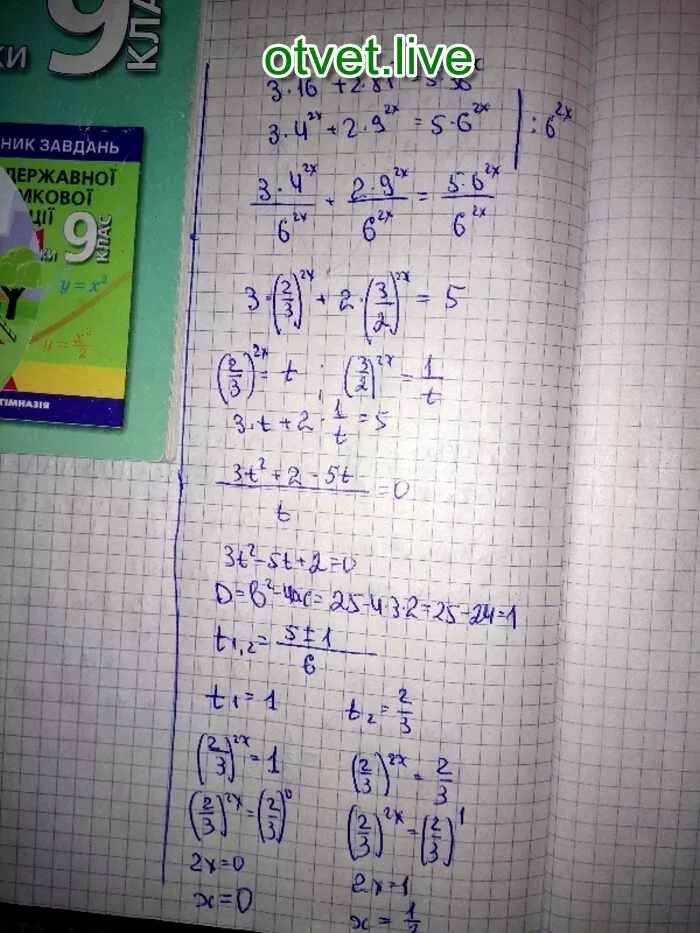 9
КЛАС
НИК ЗАВДАНЬ
ДЕРЖАВНОЇ
9
КЛАС
y = x²
ГІМНАЗІЯ
otvet.live
3·4^2x + 2·9^2x = 5·6^2x | : 6^2x
3·4^2x / 6^2x + 2·9^2x / 6^2x = 5·6^2x / 6^2x
3·(2/3)^2x + 2·(3/2)^2x = 5
(2/3)^2x = t ; (3/2)^2x = 1/t
3·t + 2·1/t = 5
3t² + 2 - 5t / t = 0
3t² - 5t + 2 = 0
D = b² - 4ac = 25 - 4·3·2 = 25 - 24 = 1
t1,2 = 5 ± 1 / 6
t1 = 1 t2 = 2/3
(2/3)^2x = 1 (2/3)^2x = 2/3
(2/3)^2x = (2/3)^0 (2/3)^2x = (2/3)^1
2x = 0 2x = 1
x = 0 x = 1/2